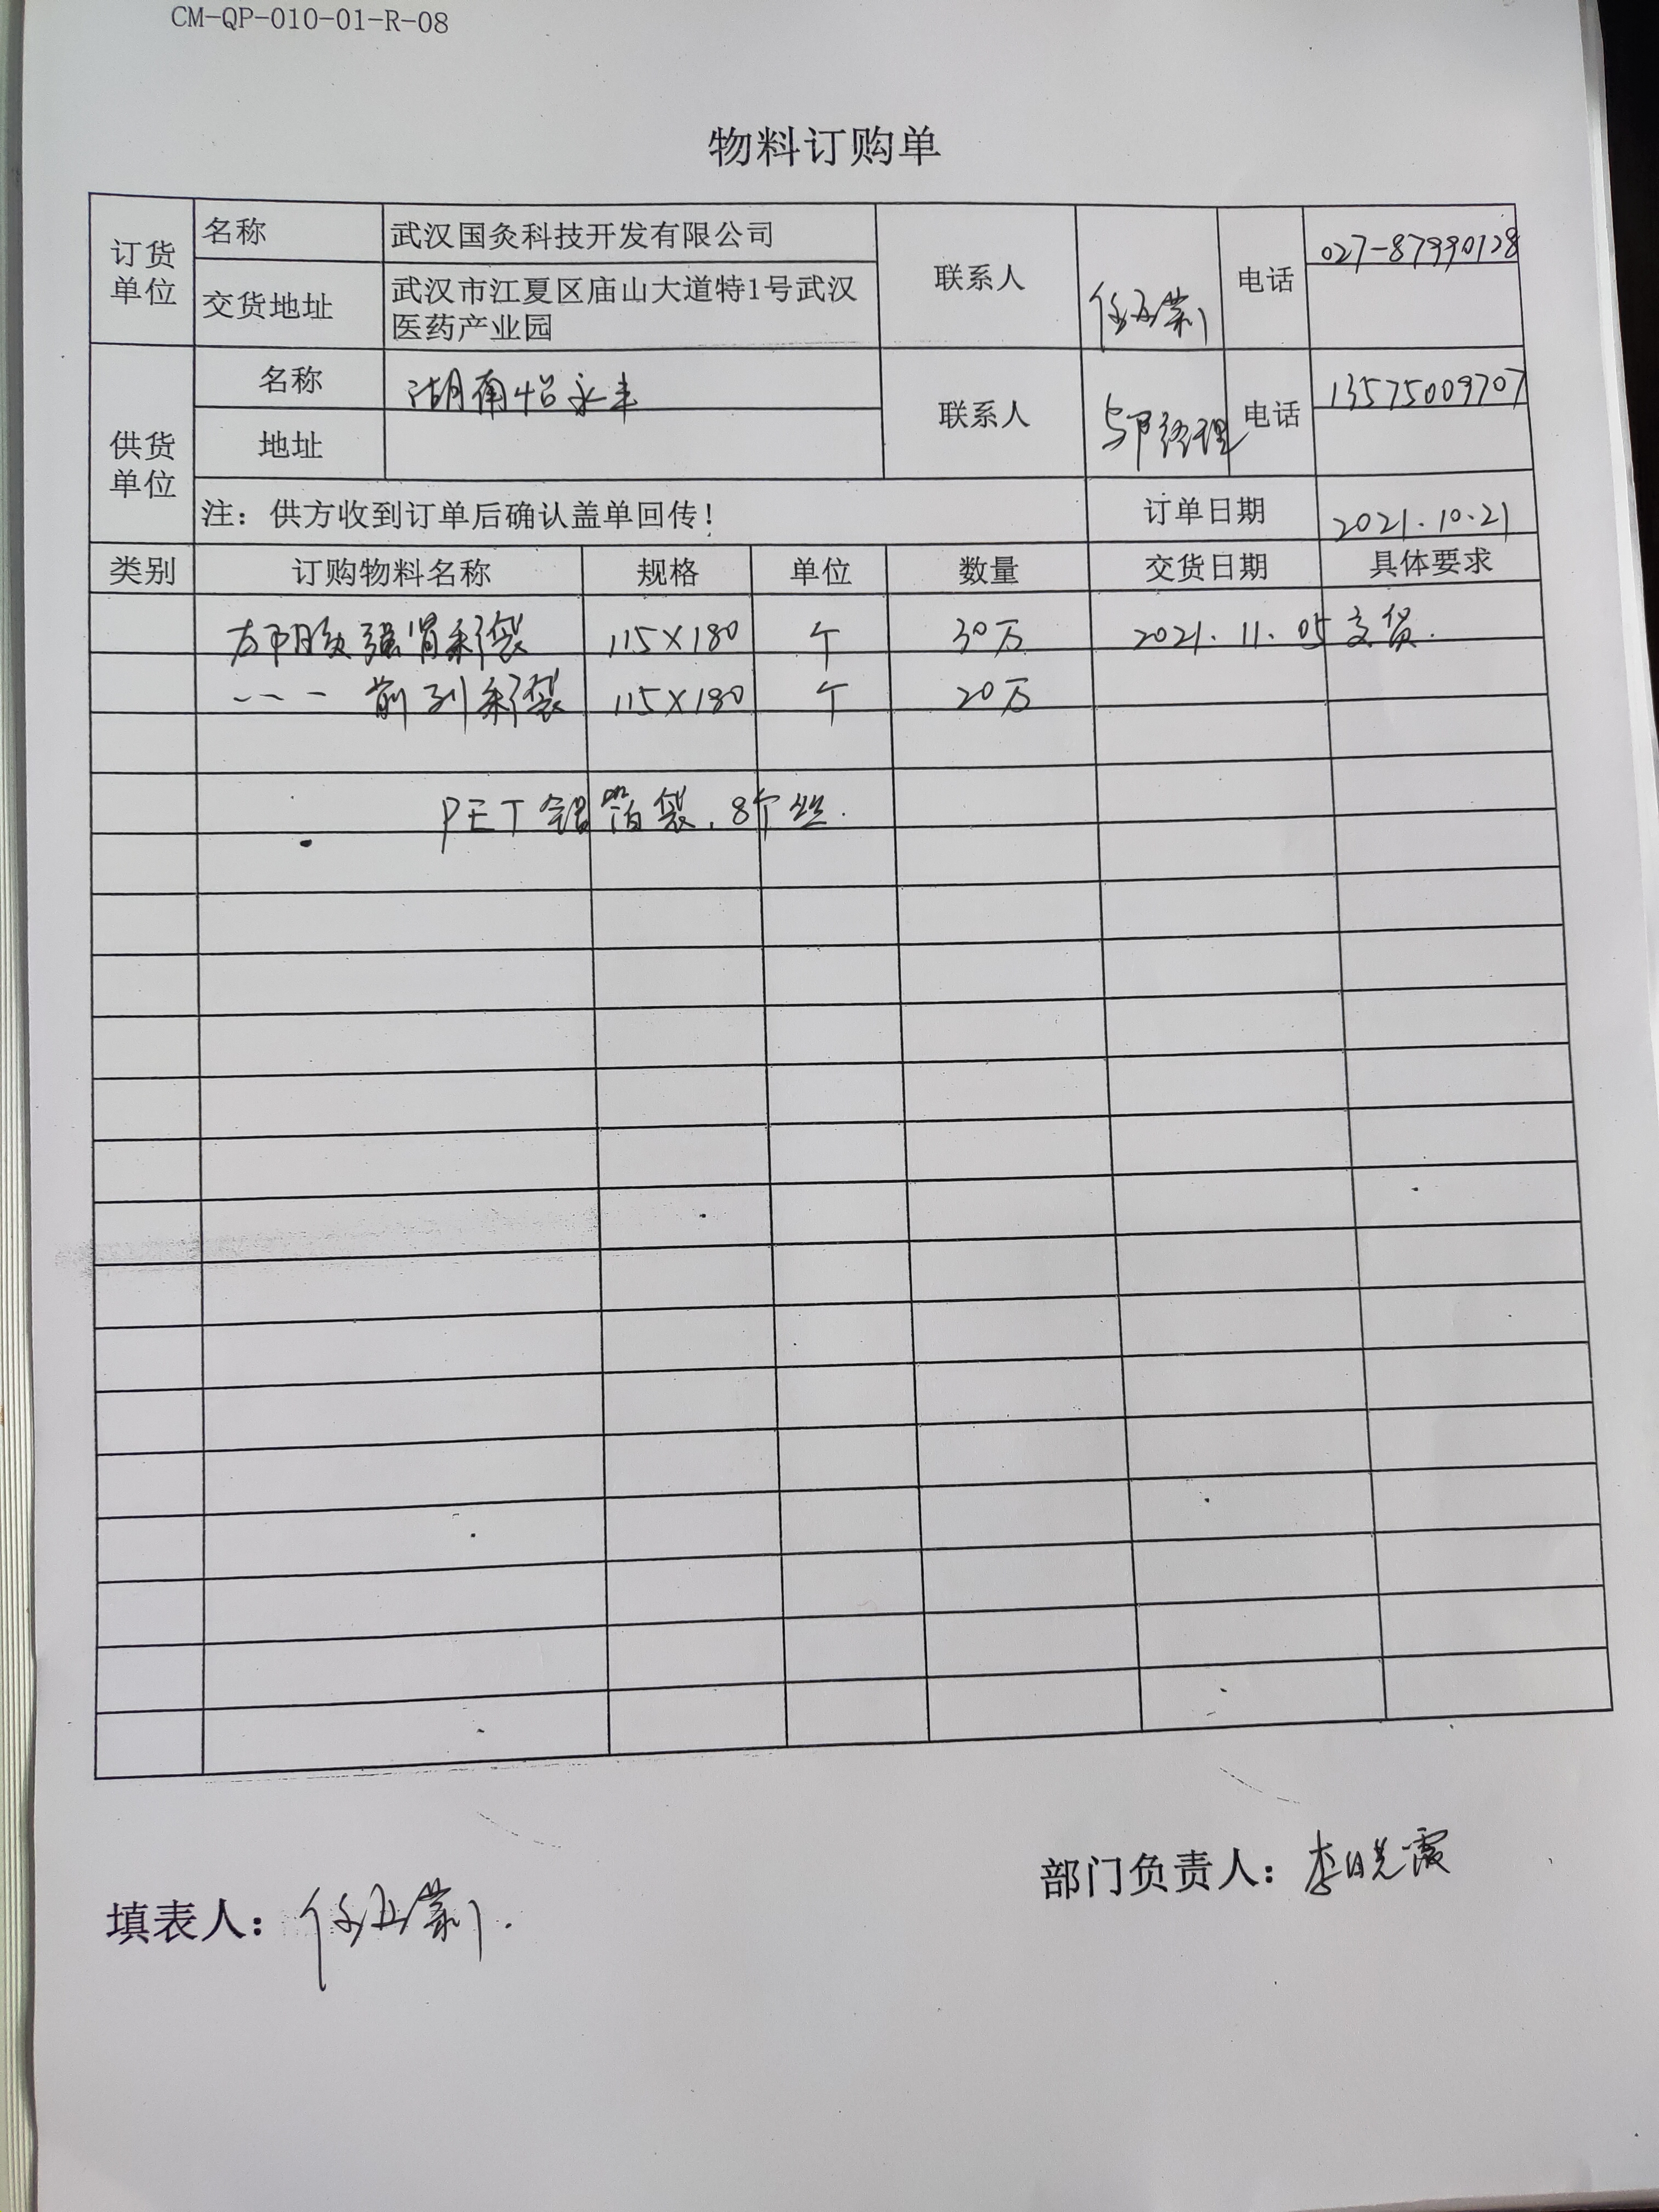 CM-QP-010-01-R-08
物料订购单
订货单位 名称 武汉国灸科技开发有限公司 联系人 电话 027-87990128
交货地址 武汉市江夏区庙山大道特1号武汉
医药产业园
供货单位 名称 湖南怡永丰 联系人 邹经理 电话 13575009707
地址
注：供方收到订单后确认盖单回传！ 订单日期 2021.10.21
类别 订购物料名称 规格 单位 数量 交货日期 具体要求
强肾彩袋 115×180 个 30万 2021.11.05交货.
--- 前列彩袋 115×180 个 20万
PET铝箔袋.8个丝.
部门负责人：李晓霞
填表人：